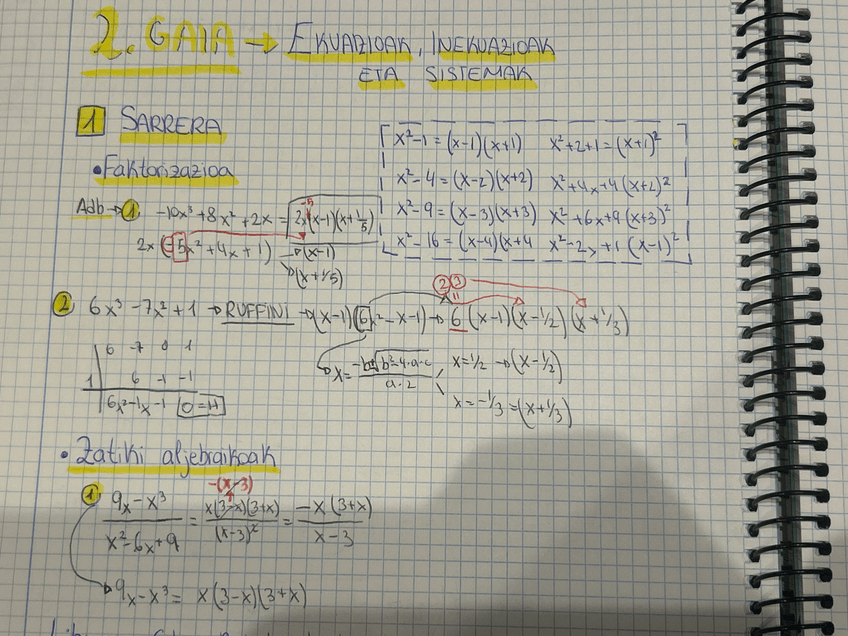 2. GAIA → EKUAZIOAK, INEKUAZIOAK
ETA SISTEMAK
1 SARRERA
• Faktorizazioa
x²-1 = (x-1)(x+1) x²+2+1 = (x+1)²
x²-4 = (x-2)(x+2) x²+4x+4 (x+2)²
x²-9 = (x-3)(x+3) x²+6x+9 (x+3)²
x²-16 = (x-4)(x+4 x²-2x+1 (x-1)²
-5
Adb → 1 -10x³+8x²+2x = 2x(x-1)(x+1/5)
2x (-5x²+4x+1) → (x-1)
→ (x+1/5)
2 3
2 6x³-7x²+1 → RUFFINI → (x-1)(6x²-x-1) → 6(x-1)(x-1/2)(x+1/3)
6 -7 0 1
1 6 -1 -1
6x²-1x-1 0=H
x = -b±√b²-4·a·c / a·2, x=1/2 → (x-1/2)
x=-1/3 = (x+1/3)
• Zatiki aljebraikoak
-(x-3)
1 9x-x³ / x²-6x+9 = x(3-x)(3+x) / (x-3)² = -x(3+x) / x-3
→ 9x-x³ = x(3-x)(3+x)